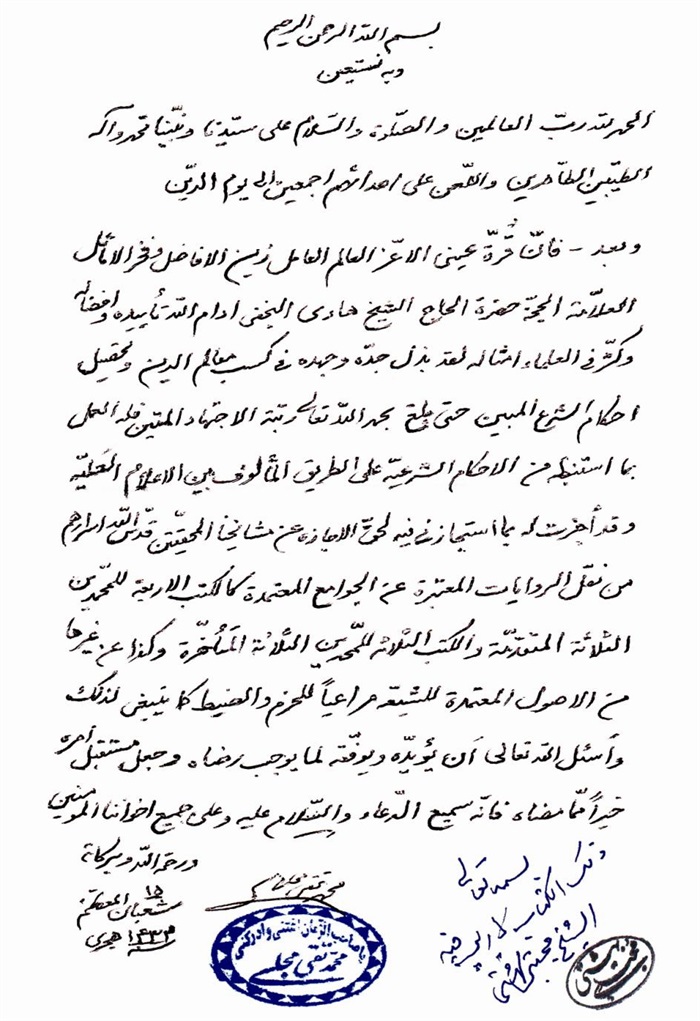 بسم الله الرحمن الرحیم
وبه نستعین
الحمد لله ربّ العالمین والصلوة والسّلام علی سیّدنا ونبیّنا محمد وآله
الطیّبین الطّاهرین واللعن علی اعدائهم اجمعین الی یوم الدّین
وبعد – فانّ قرّة عینی الاعزّ العالم العامل زین الافاضل وفخر الاماثل
العلّامة الحجّة حضرة الحاج الشیخ هادی النجفی ادام الله تأییده وافضاله
وکثّر فی العلماء امثاله لقد بذل جدّه وجهده فی کسب معالم الدین وتحصیل
احکام الشرع المبین حتی بلغ بحمد الله تعالی رتبة الاجتهاد المتین فله العمل
بما استنبطه من الاحکام الشرعیّه علی الطریق المألوف بین الاعلام العلیّه
وقد أجزت له بما استجازنی فیه لحقّ الاجازه عن مشایخنا المحقّقین قدّس الله اسرارهم
من نقل الروایات المعتبرة عن الجوامع المعتمدة کالکتب الاربعة للمحمّدین
الثلاثة المتقدّمة والکتب الثلاثه للمحمّدین الثلاثة المتأخّرة وکذا عن غیرها
من الاصول المعتمدة للشیعّه مراعیاً للحزم والضبط کما ینبغی لذلک
وأسئل الله تعالی أن یؤیّده ویوفّقه لما یوجب رضاه وجعل مستقبل أمره
خیراً ممّا مضاه فانّه سمیع الدّعاء والسّلام علیه وعلی جمیع اخواننا المومنین
ورحمة الله وبرکاته
۱۵
شعبان المعظّم
۱۴۳۳ هجری
محمد تقی مجلسی
یا صاحب الزمان اغثنی وادرکنی
محمد تقی مجلسی
بسمه تعالی
الکتاب لا ریب فیه
الشیخ مجتبی